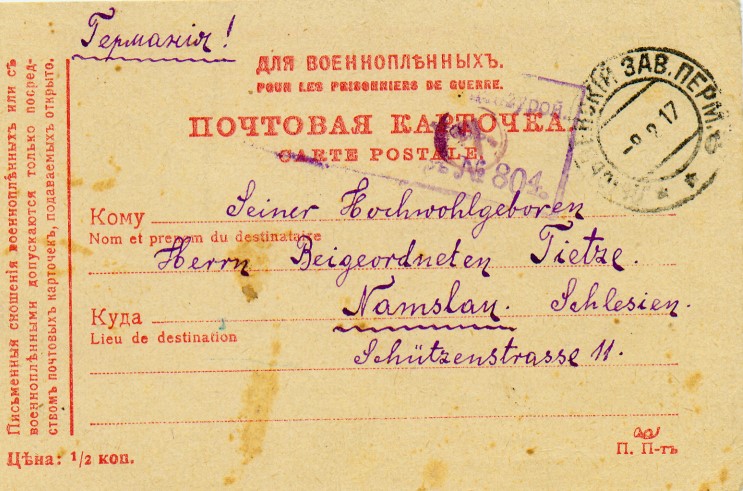 Германія!
ДЛЯ ВОЕННОПЛѢННЫХЪ.
POUR LES PRISONNIERS DE GUERRE.
ПОЧТОВАЯ КАРТОЧКА.
CARTE POSTALE.
ЗАВ. ПЕРМ. Б
9 2 17
№ 801
Кому Seiner Hochwohlgeboren
Nom et prenom du destinataire
Herrn Beigeordneten Tietze.
Куда Namslau. Schlesien.
Lieu de destination
Schützenstrasse 11.
Письменныя сношенія военноплѣнныхъ или съ
военноплѣнными допускаются только посред-
ствомъ почтовыхъ карточекъ, подаваемыхъ открыто.
Цѣна: 1/2 коп.
П. П-тъ